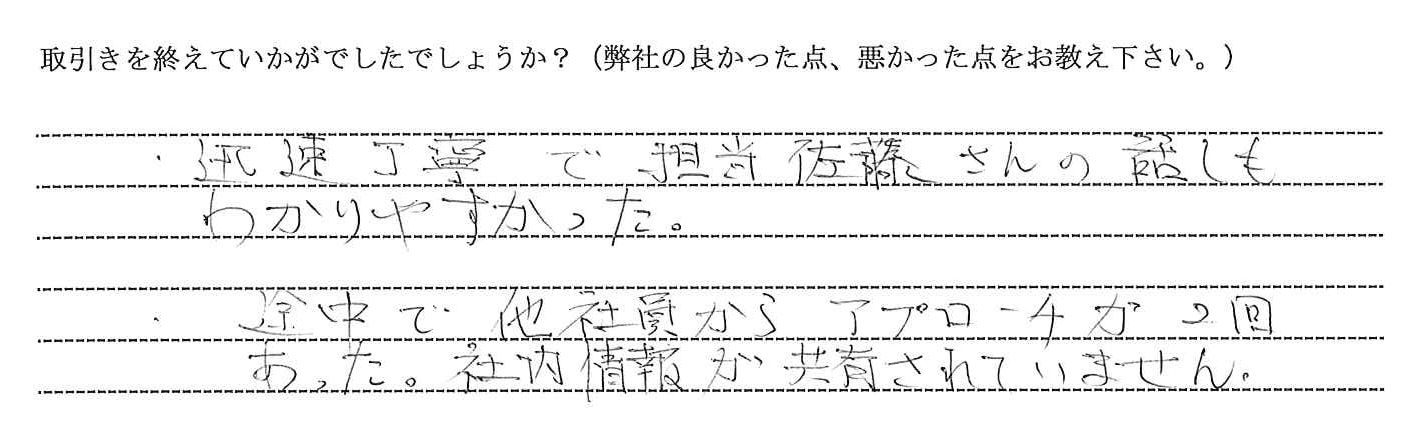 取引きを終えていかがでしたでしょうか？（弊社の良かった点、悪かった点をお教え下さい。）
・迅速丁寧で担当佐藤さんの話しも
わかりやすかった。
・途中で他社員からアプローチが2回
あった。社内情報が共有されていません。